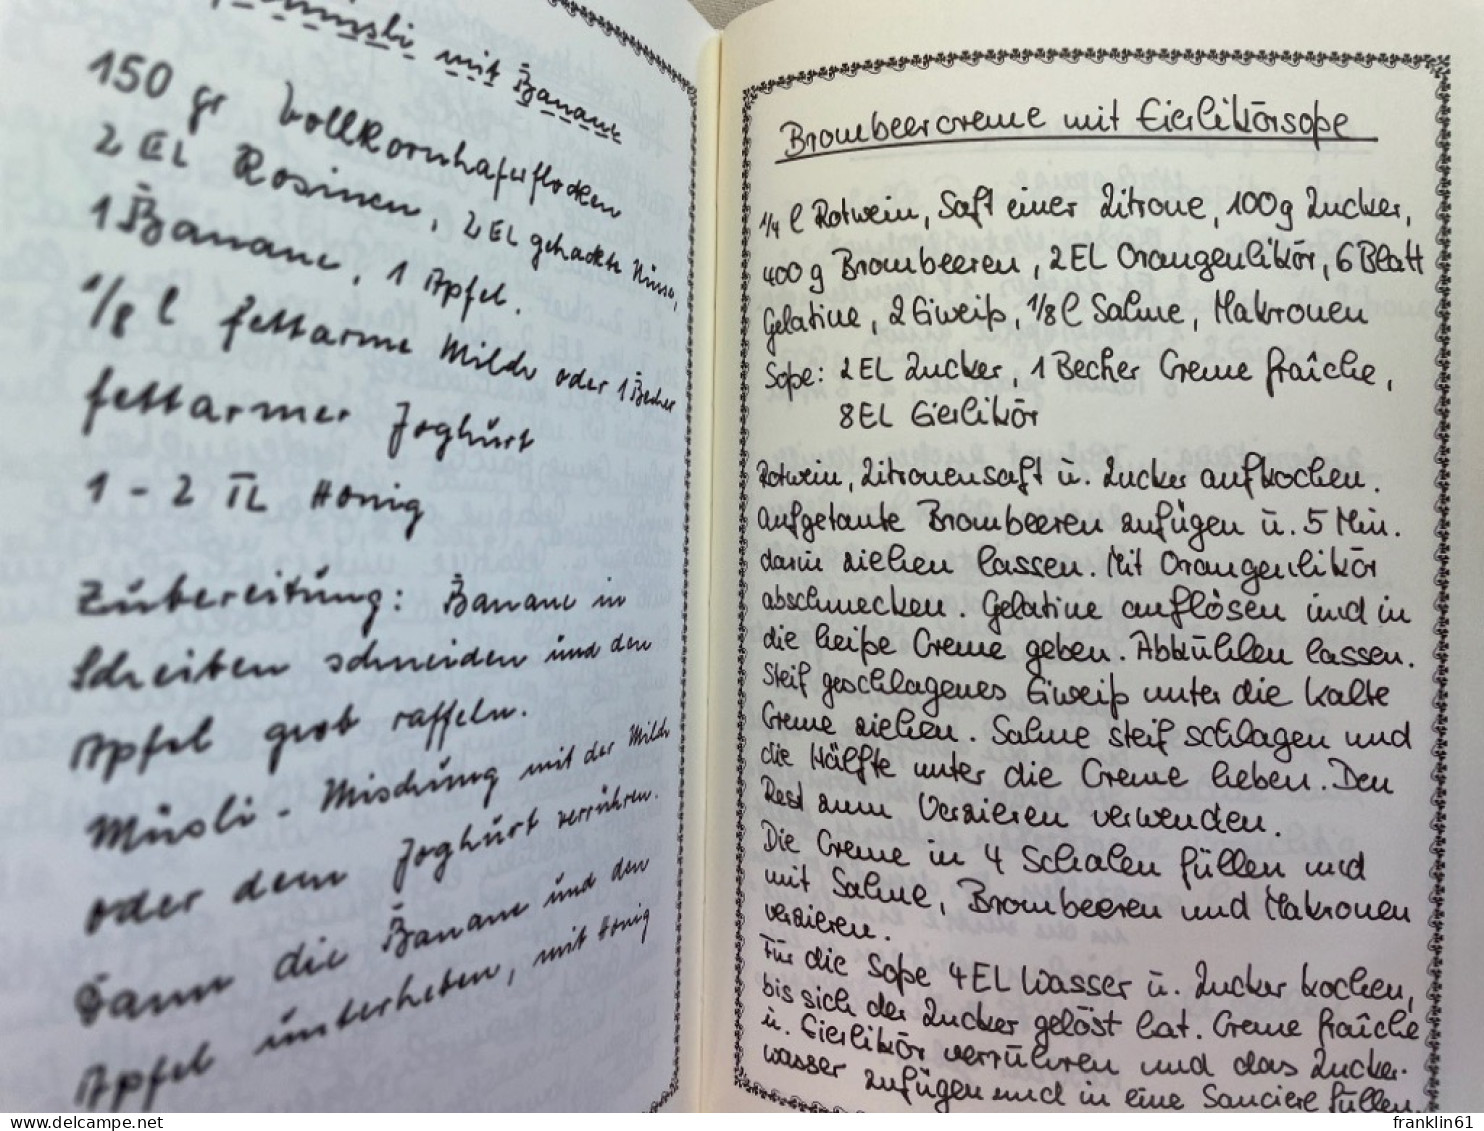 mit Banane
150 gr Vollkornhaferflocken
2 EL Rosinen, 2 EL gehackte Nüsse,
1 Banane, 1 Apfel.
1/8 l fettarme Milch oder 1 Becher
fettarmer Joghurt
1 - 2 TL Honig
Zubereitung: Banane in
Scheiben schneiden und den
Apfel grob raffeln.
Müsli - Mischung mit der Milch
oder dem Joghurt verrühren.
Dann die Banane und den
Apfel unterheben, mit Honig
Brombeercreme mit Eierlikörsoße
1/4 l Rotwein, Saft einer Zitrone, 100g Zucker,
400 g Brombeeren, 2 EL Orangenlikör, 6 Blatt
Gelatine, 2 Eiweiß, 1/8 l Sahne, Makronen
Soße: 2 EL Zucker, 1 Becher Creme fraîche,
8 EL Eierlikör
Rotwein, Zitronensaft u. Zucker aufkochen.
Aufgetaute Brombeeren zufügen u. 5 Min.
darin ziehen lassen. Mit Orangenlikör
abschmecken. Gelatine auflösen und in
die heiße Creme geben. Abkühlen lassen.
Steif geschlagenes Eiweiß unter die kalte
Creme ziehen. Sahne steif schlagen und
die Hälfte unter die Creme heben. Den
Rest zum Verzieren verwenden.
Die Creme in 4 Schalen füllen und
mit Sahne, Brombeeren und Makronen
verzieren.
Für die Soße 4 EL Wasser u. Zucker kochen,
bis sich der Zucker gelöst hat. Creme fraîche
u. Eierlikör verrühren und das Zucker-
wasser zufügen und in eine Sauciere füllen.
delcampe.net
franklin61